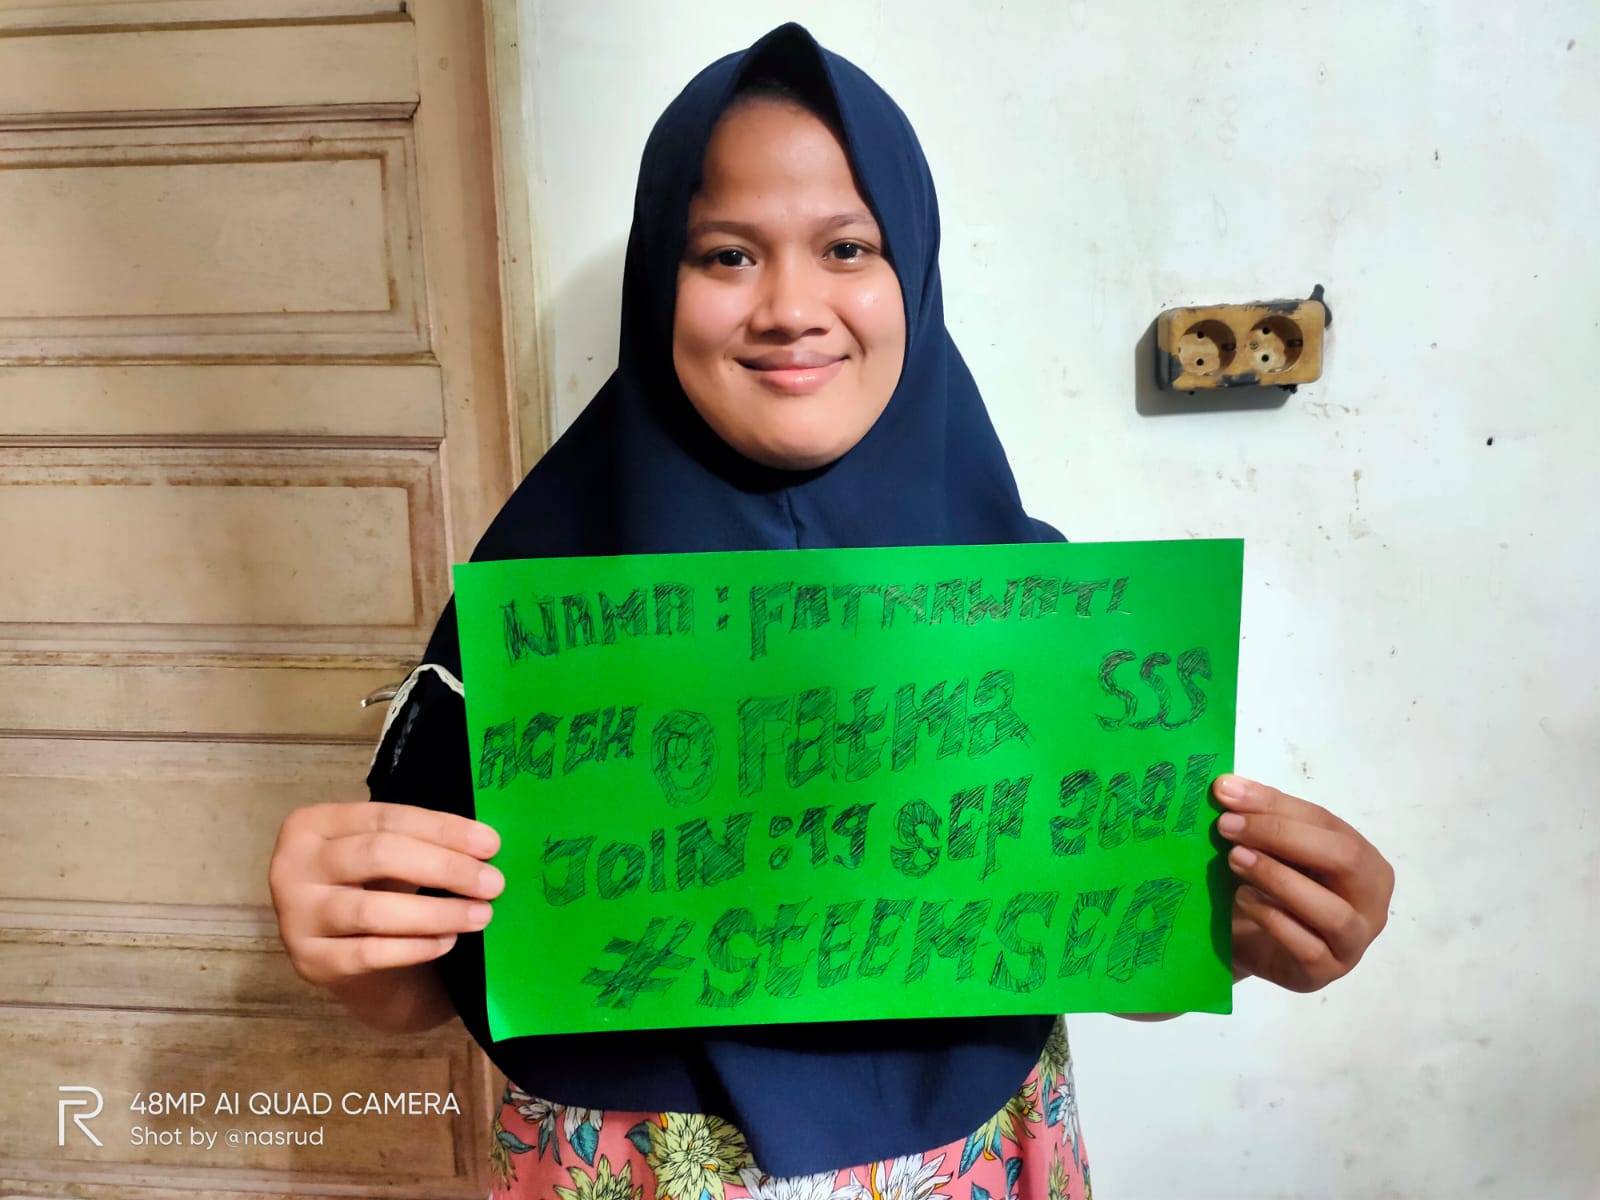 NAMA : FATMAWATI
ACEH @FatMa SSS
JOIN : 19 SEP 2021
#STEEMSEA
48MP AI QUAD CAMERA
Shot by @nasrud